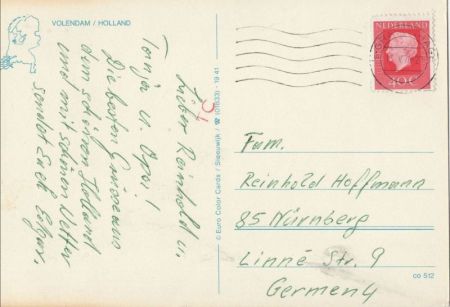 VOLENDAM / HOLLAND
Lieber Reinhold u.
Tanja u. Opa!
Die besten Grüsse aus
dem schönen Holland
und mit schönen Wetter
sendet Euch
© Euro Color Cards / Sleeuwijk / ☎ (01833) - 19 41
NEDERLAND
40c
Fam.
Reinhold Hoffmann
85 Nürnberg
Linné Str. 9
Germeny
CO 512